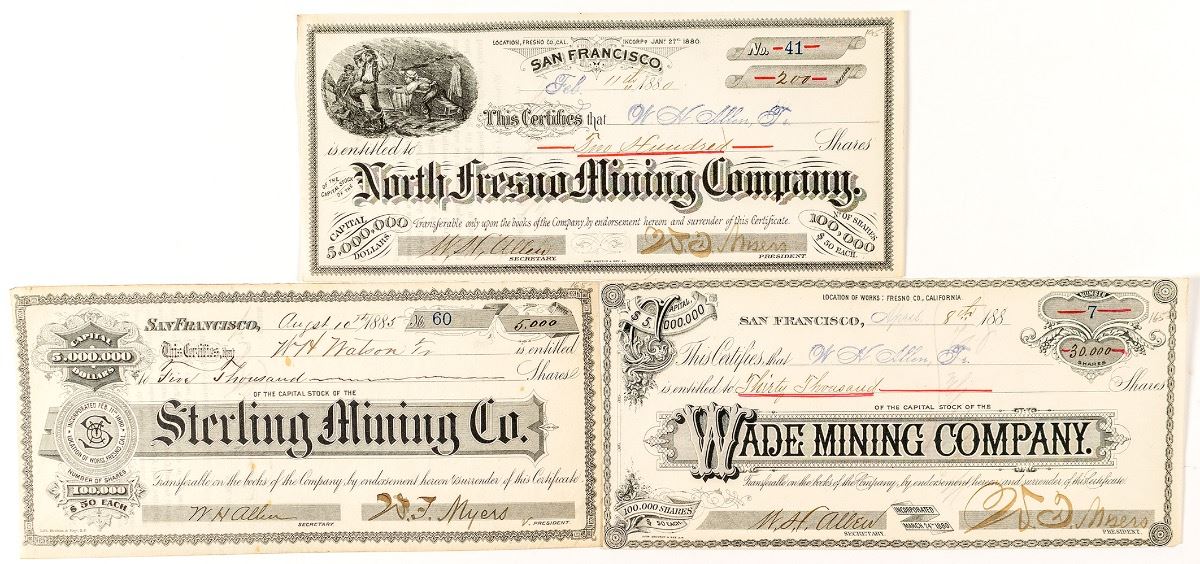 LOCATION, FRESNO CO., CAL. INCORP'D JAN'Y 27TH 1880.
SAN FRANCISCO,
Feb. 11th 1880
No. 41
200
This Certifies that W H Allen, Tr.
is entitled to Two Hundred Shares
OF THE CAPITAL STOCK OF THE
North Fresno Mining Company.
CAPITAL 5,000,000 DOLLARS
Transferable only upon the books of the Company, by endorsement hereon and surrender of this Certificate.
100,000 Nº OF SHARES $50 EACH.
W. H. Allen SECRETARY
W. F. Myers PRESIDENT
CAPITAL 5,000,000 DOLLARS
SAN FRANCISCO, Augst 10th 1885 No. 60 5,000
This Certifies, that W H Watson Tr is entitled
to Five Thousand Shares
OF THE CAPITAL STOCK OF THE
Sterling Mining Co.
INCORPORATED FEB. LOCATION OF WORKS, FRESNO CO., CAL.
NUMBER OF SHARES 100,000 $50 EACH
Transferable on the books of the Company, by endorsement hereon & surrender of this Certificate
W H Allen SECRETARY
W. F. Myers V. PRESIDENT.
CAPITAL $5,000,000
LOCATION OF WORKS: FRESNO CO., CALIFORNIA.
SAN FRANCISCO, April 8th 188
NUMBER 7
30.000 SHARES
This Certifies, that W H Allen, Tr.
is entitled to Thirty Thousand Shares
OF THE CAPITAL STOCK OF THE
WADE MINING COMPANY.
Transferable on the books of the Company, by endorsement hereon, and surrender of this Certificate.
100.000 SHARES $50 EACH
W. H. Allen SECRETARY.
INCORPORATED MARCH 24TH 1880
W. F. Myers PRESIDENT.